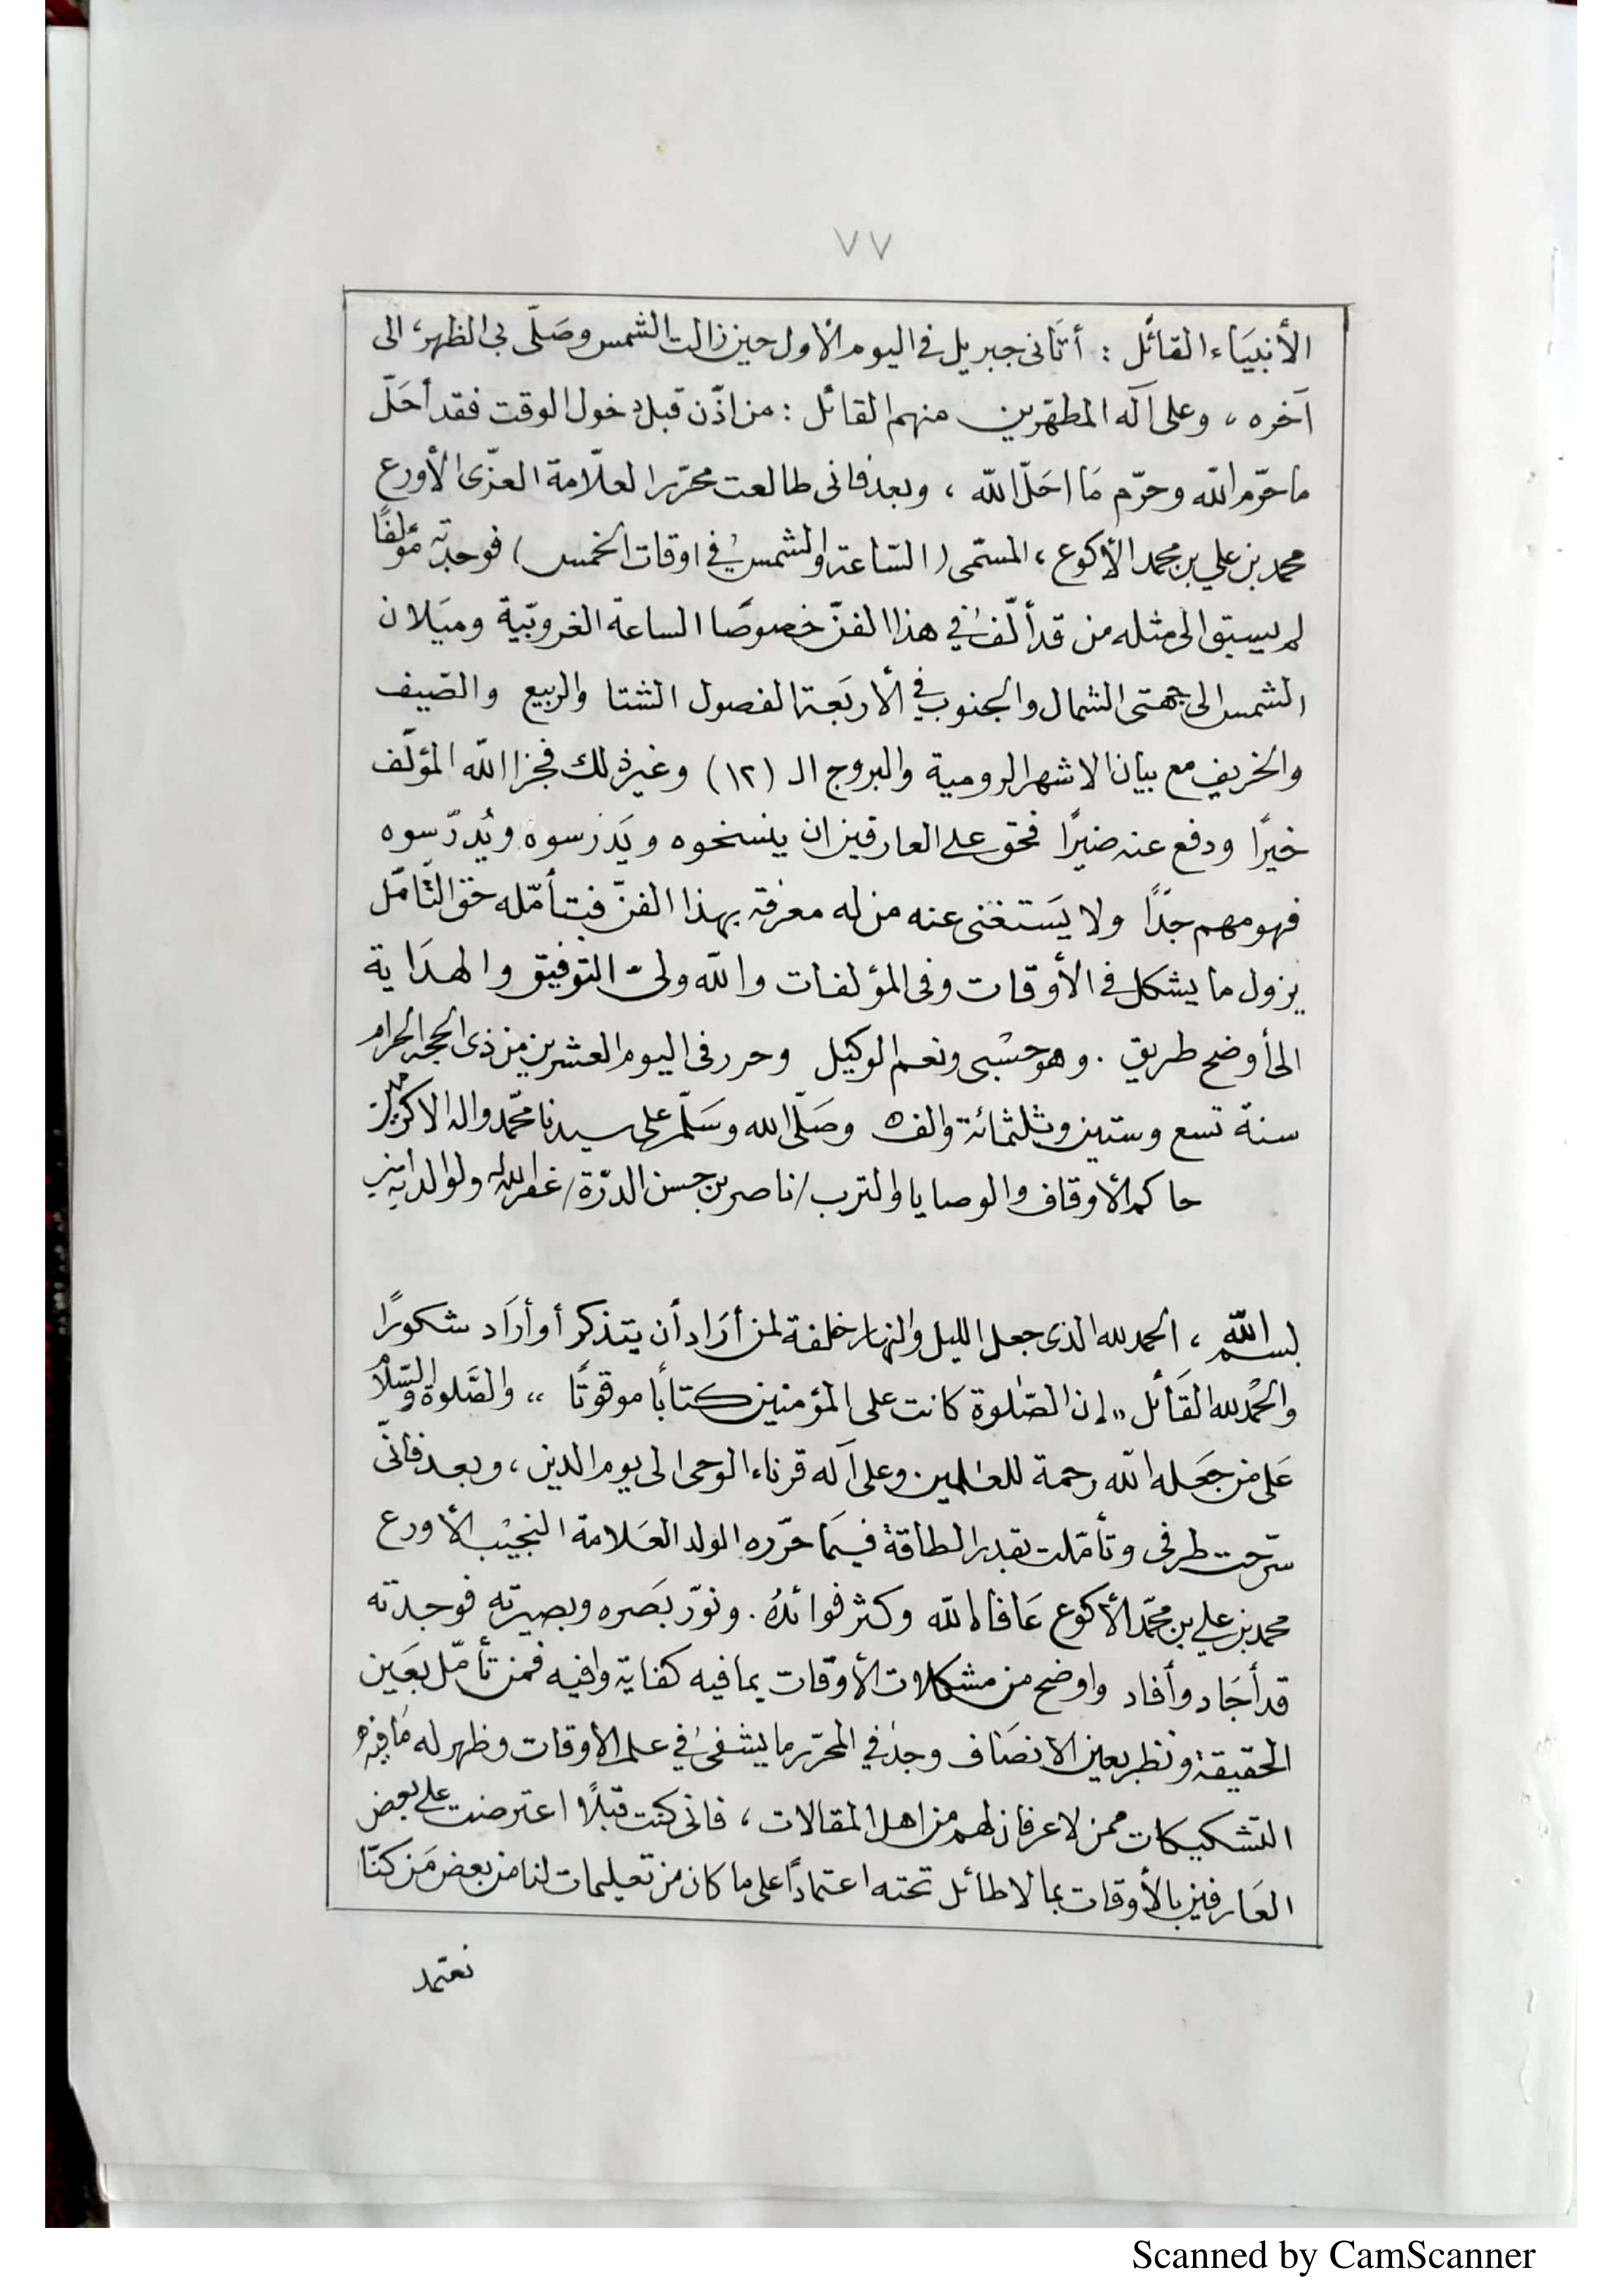 ٧٧
الأنبيَاء القائل : أتَانى جبريل فى اليوم الأول حين زالت الشمس وصَلّى بى الظهر، الى
آخره ، وعلى آله المطهّرين منهم القائل : من اذّن قبل دخول الوقت فقد أحَلّ
ما حرّم الله وحرّم مَا احَلّ الله ، وبعد فانى طالعت محرّر العلّامة العزّى الأورع
محمد بن علي بن محمد الأكوع ، المسمّى (السّاعة والشمس في اوقات الخمس) فوجدته مؤلفًا
لم يسبق الى مثله من قد ألّف في هذا الفنّ خصوصًا الساعة الغروبيّة وميَلان
الشمس الى جهتى الشمال والجنوب في الأربَعة الفصول الشتا والربيع والصّيف
والخريف مع بيان الاشهر الرومية والبروج الـ (١٢) وغير ذلك فجزا الله المؤلّف
خيرًا ودفع عنه ضيرًا فحق على العارفين ان ينسخوه ويَدرسوه ويُدرّسوه
فهو مهم جدًا ولا يَستغنى عنه من له معرفة بهذا الفنّ فبتأمّله حق التّأمّل
يزول ما يشكل فى الأوقات وفى المؤلفات والله ولىّ التوفيق والهدَاية
الى أوضح طريق . وهو حسْبى ونعم الوكيل وحرر فى اليوم العشرين من ذى الحجة الحرام
سنة تسع وستين وثلثمائة والف ه وصَلّى الله وسَلّم على سيدنا محمّد واله الاكرمين
حاكم الأوقاف والوصايا والترب / ناصر بن حسن الدرّة / غفر الله له ولوالديه امين
بسم الله ، الحمد لله الذى جعل الليل والنهار خلفة لمن أرَاد أن يتذكر أو أرَاد شكورًا
والحمْد لله القَائل ,, إن الصّلوة كانت على المؤمنين كتابًا موقوتًا ,, والصَّلوة والسّلام
عَلى من جعَله الله رحمة للعٰلمين . وعلى آله قرناء الوحى الى يوم الدين ، وبعد فانّى
سرّحت طرفى وتأمّلت بقدر الطاقة فيمَا حرّره الولد العَلامة النجيْب الأورع
محمد بن علي بن محمّد الأكوع عَافاه الله وكثر فوائدهُ . ونوّر بَصره وبصيرته فوجدته
قد أجَاد وأفاد واوضح من مشكلات الأوقات بما فيه كفاية وافيه فمن تأمّل بعَين
الحقيقة ونظر بعين الانصَاف وجد في المحرّر ما يشفى في علم الاوقات وظهر له مَا فيه
التشكيكات ممن لا عرفان لهم من اهل المقالات ، فانى كنت قبلًا اعترضت على بعض
العَارفين بالأوقات بما لا طائل تحته اعتمادًا على ما كان من تعليمات لنا من بعض مَن كنّا
نعتمد
Scanned by CamScanner